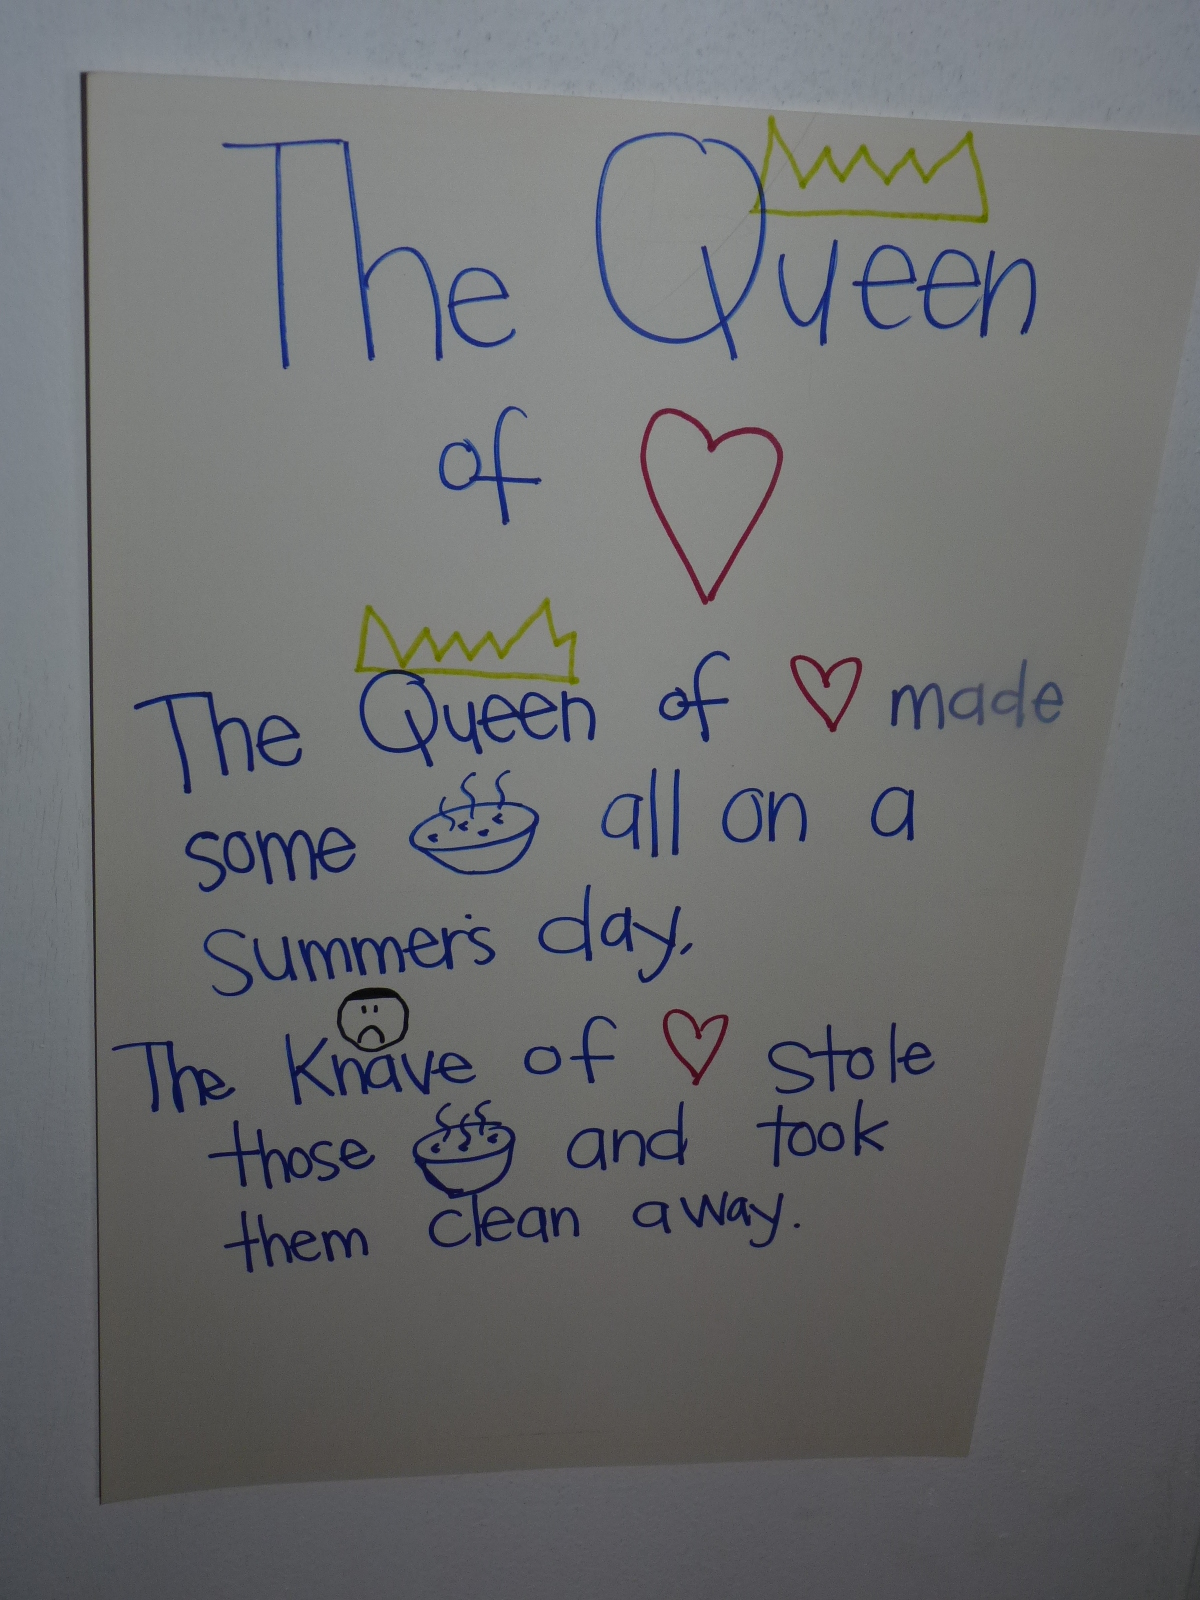 The Queen
of
The Queen of made
some all on a
Summer's day.
The Knave of stole
those and took
them clean away.